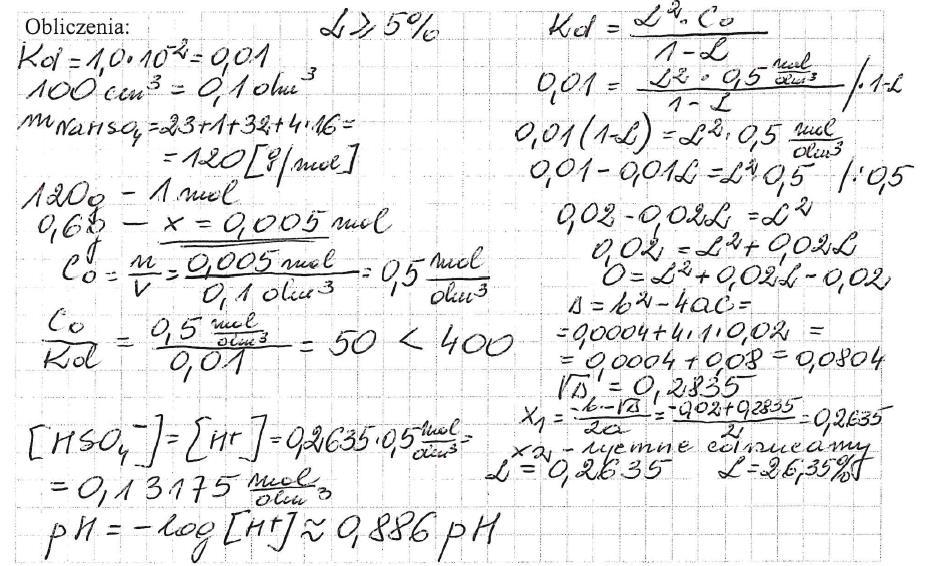 Obliczenia:
α ⩾ 5%
Kd = 1,0·10⁻² = 0,01
100 cm³ = 0,1 dm³
mNaHSO₄ = 23+1+32+4·16 =
= 120 [g/mol]
120g – 1 mol
0,6g – x = 0,005 mol
C₀ = n/V = 0,005 mol / 0,1 dm³ = 0,5 mol/dm³
C₀/Kd = 0,5 mol/dm³ / 0,01 = 50 < 400
[HSO₄⁻] = [H⁺] = 0,2635·0,5 mol/dm³ =
= 0,13175 mol/dm³
pH = -log [H⁺] ≈ 0,886 pH
Kd = α²·C₀ / 1-α
0,01 = α²·0,5 mol/dm³ / 1-α /·1-α
0,01(1-α) = α²·0,5 mol/dm³
0,01 - 0,01α = α²·0,5 /:0,5
0,02 - 0,02α = α²
0,02 = α² + 0,02α
0 = α² + 0,02α - 0,02
Δ = b² - 4ac =
= 0,0004 + 4·1·0,02 =
= 0,0004 + 0,08 = 0,0804
√Δ = 0,2835
x₁ = -b-√Δ / 2a = -0,02+0,2835 / 2 = 0,2635
x₂ - ujemne odrzucamy
α = 0,2635 α = 26,35%